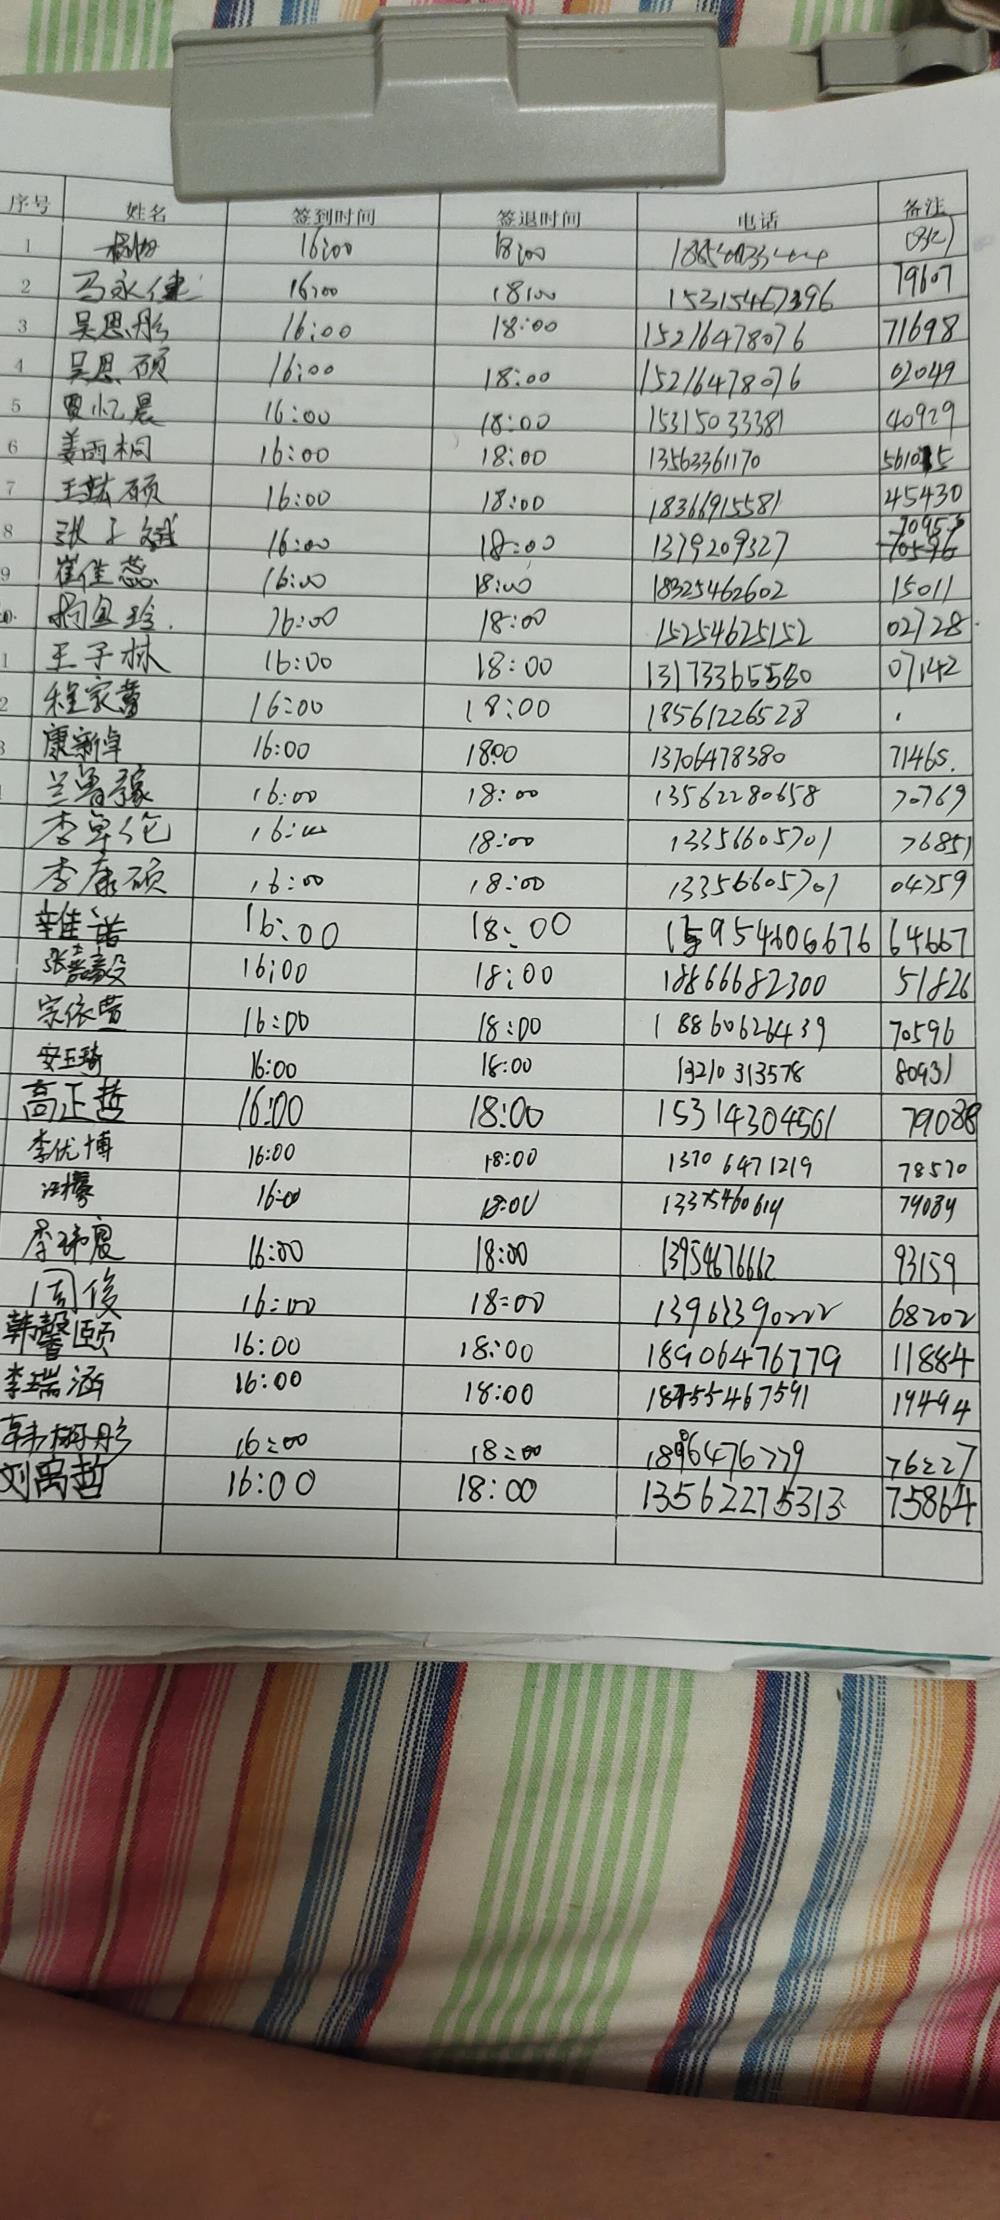 序号 姓名 签到时间 签退时间 电话 备注
1 16:00 18:00
2 马永健 16:00 18:00 15315467396 79607
3 吴恩彤 16:00 18:00 15216478076 71698
4 吴恩硕 16:00 18:00 15216478076 02049
5 贾忆晨 16:00 18:00 15315033381 40929
6 姜雨桐 16:00 18:00 13563361170
7 硕 16:00 18:00 18366915581 45430
8 张子斌 16:00 18:00 1379209327 70953
9 崔佳蕊 16:00 18:00 18325462602 15011
16:00 18:00 15254625152 02728
王子林 16:00 18:00 13173365580 07142
程家蕾 16:00 18:00 18561226528
康新卓 16:00 18:00 13706478380 71465.
兰鲁豫 16:00 18:00 13562280658 70769
李卓伦 16:00 18:00 13356605701 76851
李康硕 16:00 18:00 13356605701 04759
16:00 18:00 15954606676 64667
张嘉毅 16:00 18:00 18866682300 51826
宗依萱 16:00 18:00 18860626439 70596
安玉琦 16:00 18:00 13210313578 80931
高正哲 16:00 18:00 15314304561 79088
李优博 16:00 18:00 13706471219 78570
16:00 18:00 13375460614 79089
李玮宸 16:00 18:00 13954676662 93159
周俊 16:00 18:00 13963390222 68202
韩馨颐 16:00 18:00 18906476779 11884
李瑞涵 16:00 18:00 19494
韩栩彤 16:00 18:00 76227
刘禹哲 16:00 18:00 13562275313 75864